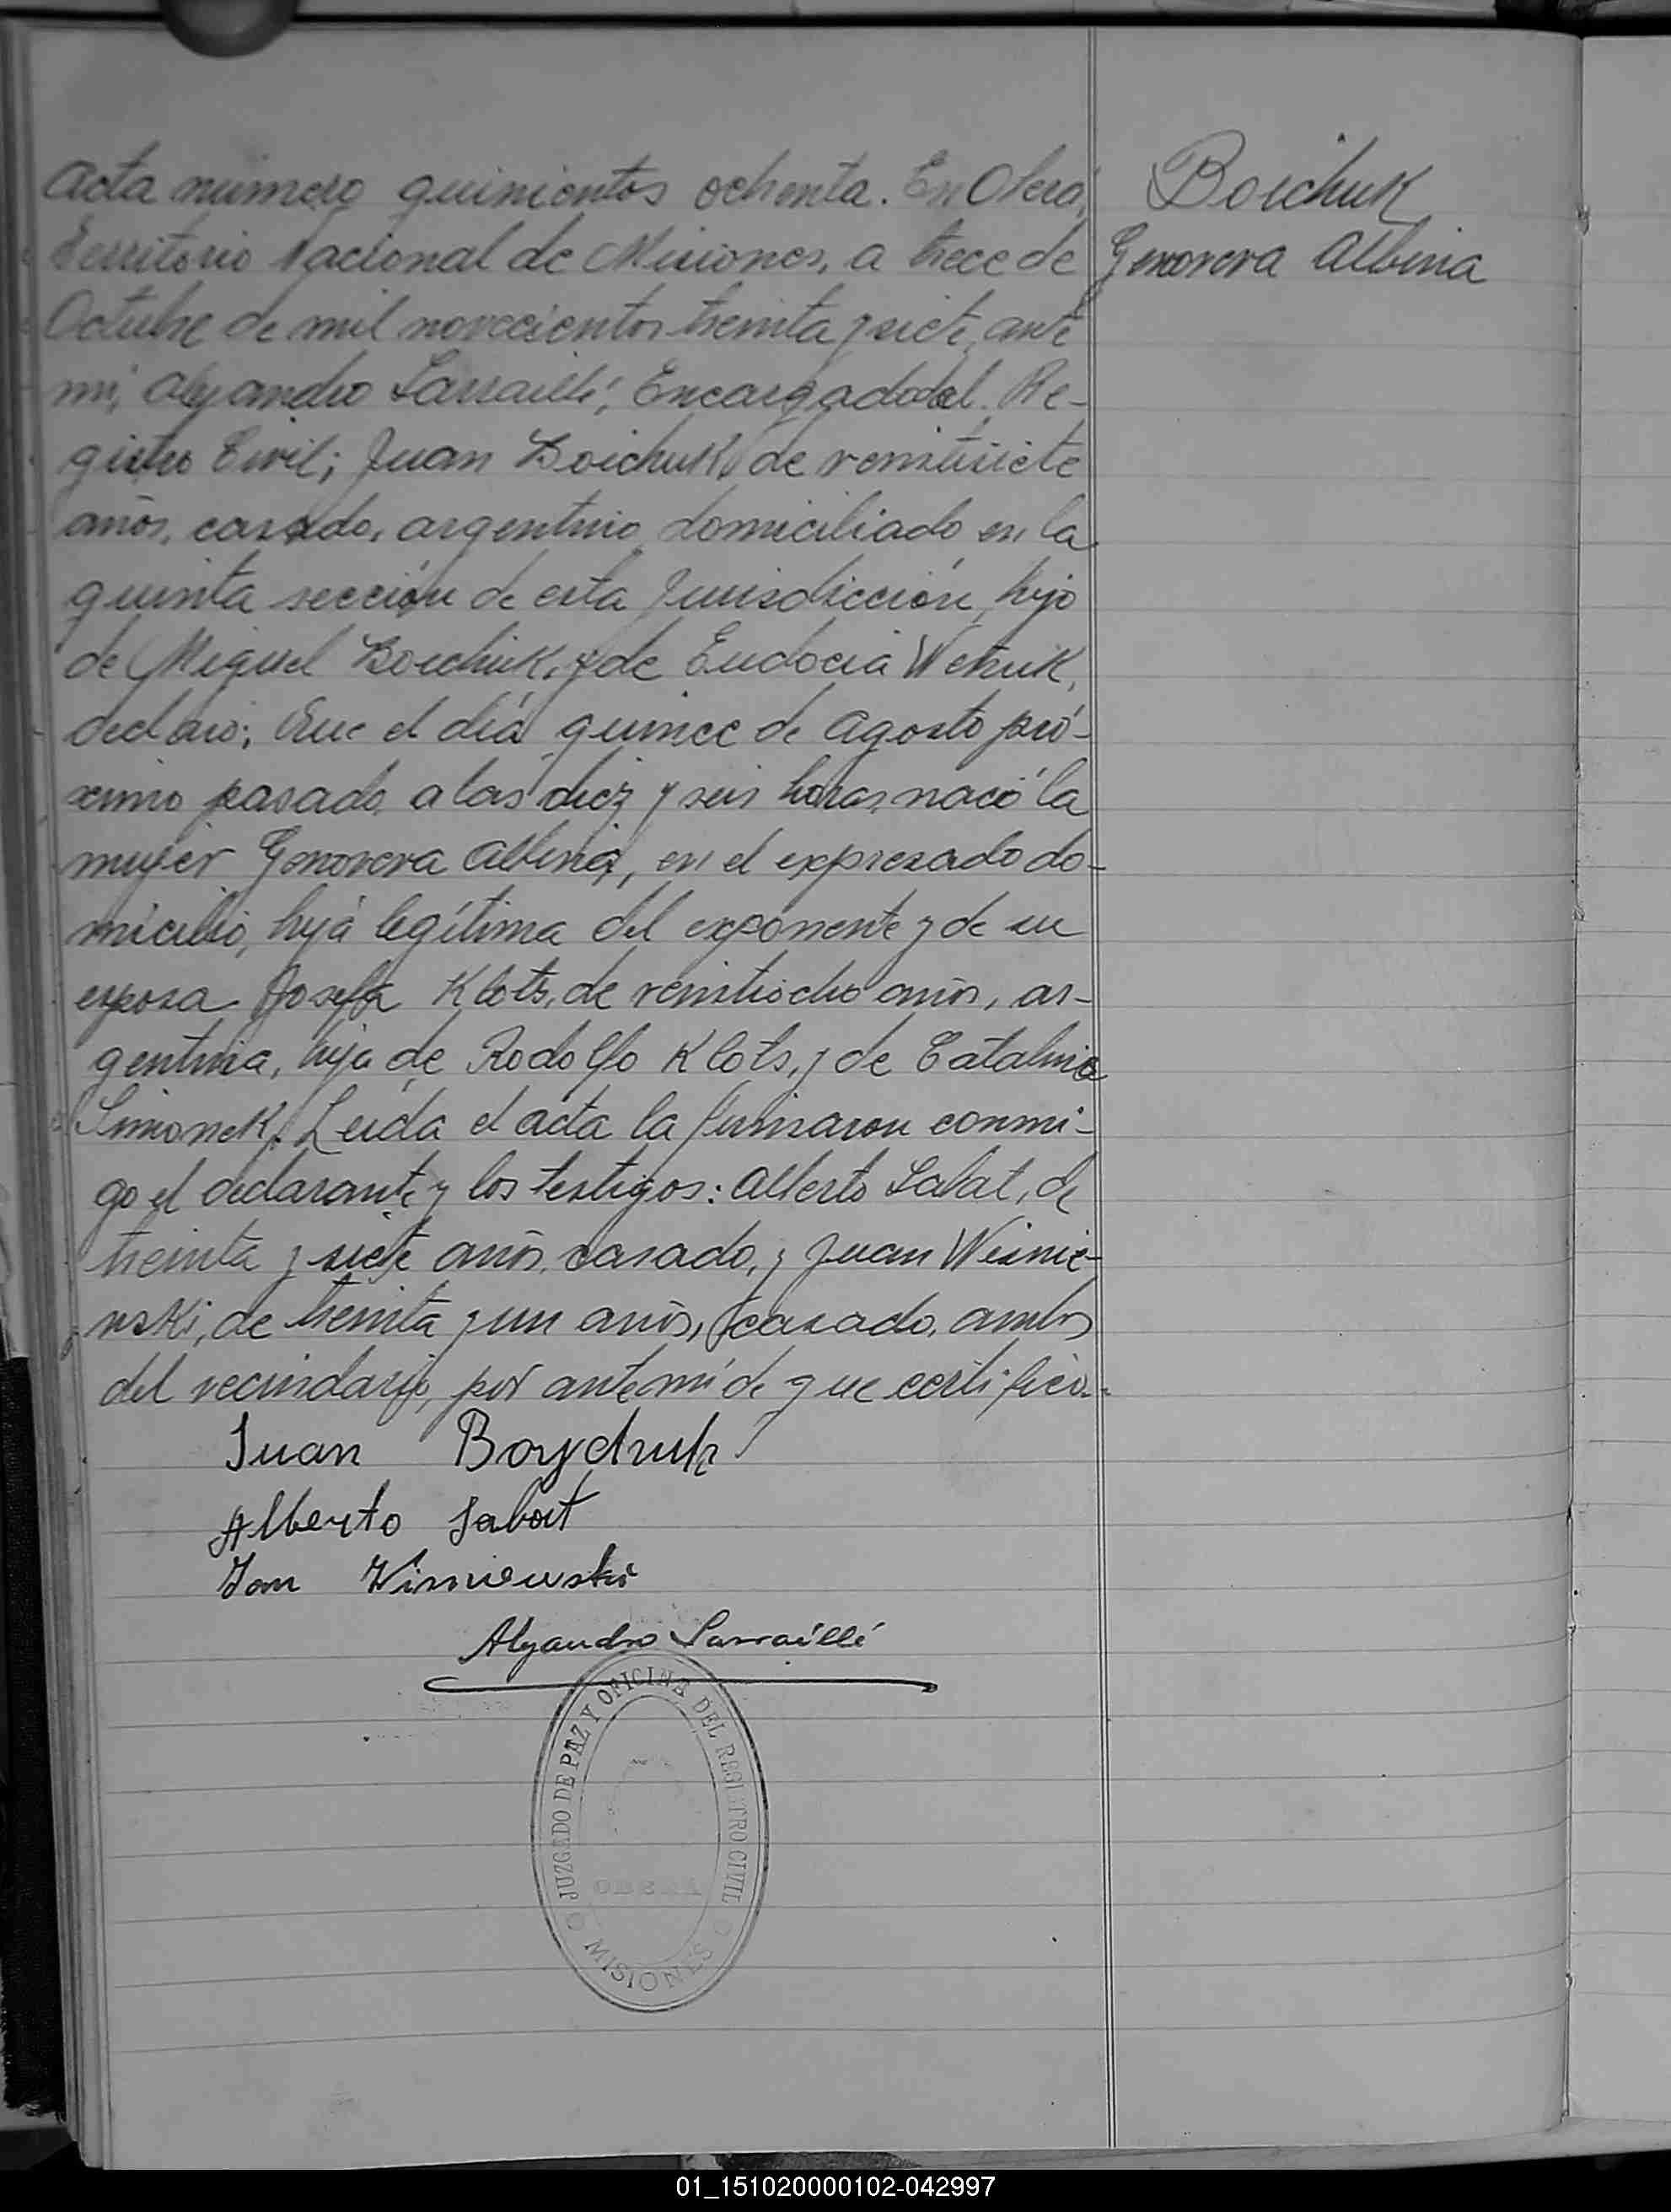 Acta número quinientos ochenta. En Oberá,
Territorio Nacional de Misiones, a trece de
Octubre de mil novecientos treinta y siete, ante
mí, Alejandro Sarraillé, Encargado del Re-
gistro Civil; Juan Boichuk, de veintisiete
años, casado, argentino, domiciliado en la
quinta sección de esta Jurisdicción, hijo
de Miguel Boichuk, y de Eudocia
declaró: Que el día quince de Agosto pró-
ximo pasado, a las diez y seis horas, nació la
mujer Genoveva Albina, en el expresado do-
micilio, hija legítima del exponente y de su
esposa Josefa Klots, de veintiocho años, ar-
gentina, hija de Rodolfo Klots, y de Catalina
Simonek. Leída el acta la firmaron conmi-
go el declarante y los testigos: Alberto Sabat, de
treinta y siete años, casado, y Juan Wisnie-
wski, de treinta y un años, casado, ambos
del vecindario, por ante mí de que certifico.-
Juan Boychuk
Alberto Sabat
Jan Wisniewski
Alejandro Sarraillé
JUZGADO DE PAZ Y OFICINA DEL REGISTRO CIVIL
OBERÁ
MISIONES
Boichuk
Genoveva Albina
01_151020000102-042997